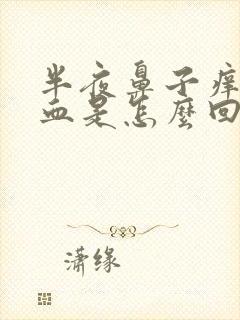 半夜鼻子痒
血是怎麼回
潇缘